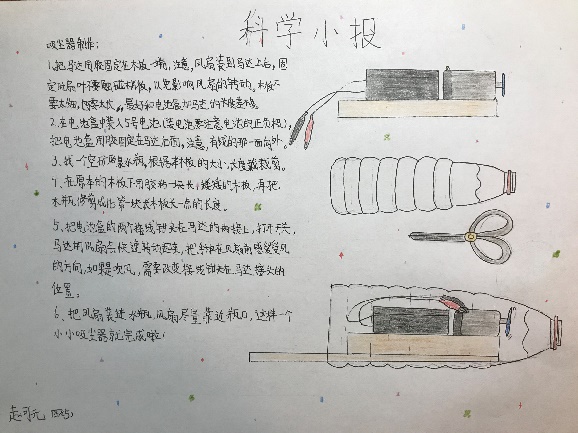 科学小报
吸尘器制作:
1.把马达用胶固定在木板一端,注意,风扇装到马达上后,固
定时扇叶不要触碰木板,以免影响风扇的转动。木板不
要太细,
2.在电池盒中装入5号电池(装电池要注意电池的正负极),
把电池盒用胶固定在马达后面,注意,有线的那一面向外。
3.找一个空矿泉水瓶,根据木板的大小,长度裁剪。
4.在原本的木板下用胶粘一块长 的木板,再把
水瓶修剪成比第一块木板长一点的长度。
5.把电池盒的两个接线钳夹在马达的两接上,打开开关,
马达带风扇点快速转动起来,把手放在风扇前感受风
的方向,如果吹风,需要改变接线钳夹在马达接头的
位置。
6、把风扇装进水瓶,风扇尽量靠近瓶口,这样一个
小小吸尘器就完成啦!